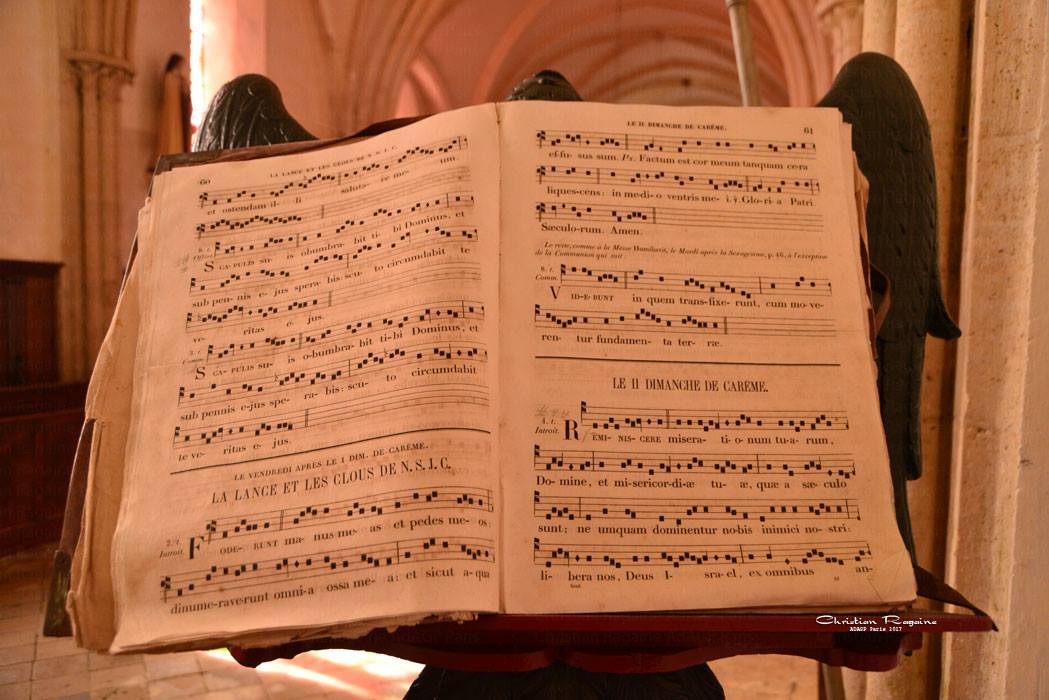 60
LA LANCE ET LES CLOUS DE N. S. J. C.
et ostendam il- li saluta- re me- um.
8. t.
Offert.
SCAPULIS su- is obumbra- bit ti- bi Dominus, et
sub pen- nis e- jus spera- bis: scu- to circumdabit te
ve- ritas e- jus.
Comm.
SCAPULIS su- is o-bumbra- bit ti-bi Dominus, et
sub pennis e-jus spe- ra- bis: scu- to circumdabit
te ve- ritas e- jus.
LE VENDREDI APRES LE I DIM. DE CARÊME.
LA LANCE ET LES CLOUS DE N. S. J. C.
2. t.
Introit.
FODE- RUNT ma- nus me- as et pedes me- os:
dinume-raverunt omni-a ossa me- a: et sicut a-qua
LE II DIMANCHE DE CARÊME. 61
ef-fu- sus sum. Ps. Factum est cor meum tanquam ce-ra
liques-cens: in medi-o ventris me- i. ℣. Glo-ri-a Patri.
Sæculo-rum. Amen.
Le reste, comme à la Messe Humiliavit, le Mardi après la Sexagésime, p. 46, à l'exception
de la Communion qui suit:
8. t.
Comm.
VIDE-BUNT in quem trans-fixe- runt, cum mo-ve-
ren- tur fundamen- ta ter- ræ.
LE II DIMANCHE DE CARÊME.
4. t.
Introit.
REMI- NIS- CERE misera- ti-o-num tu-a-rum,
Do-mine, et mi-sericor-di-æ tu- æ, quæ a sæ-culo
sunt; ne umquam dominentur nobis inimici no-stri:
li- bera nos, Deus I- sra-el, ex omnibus an-
Christian Ragaine
ADAGP Paris 2017